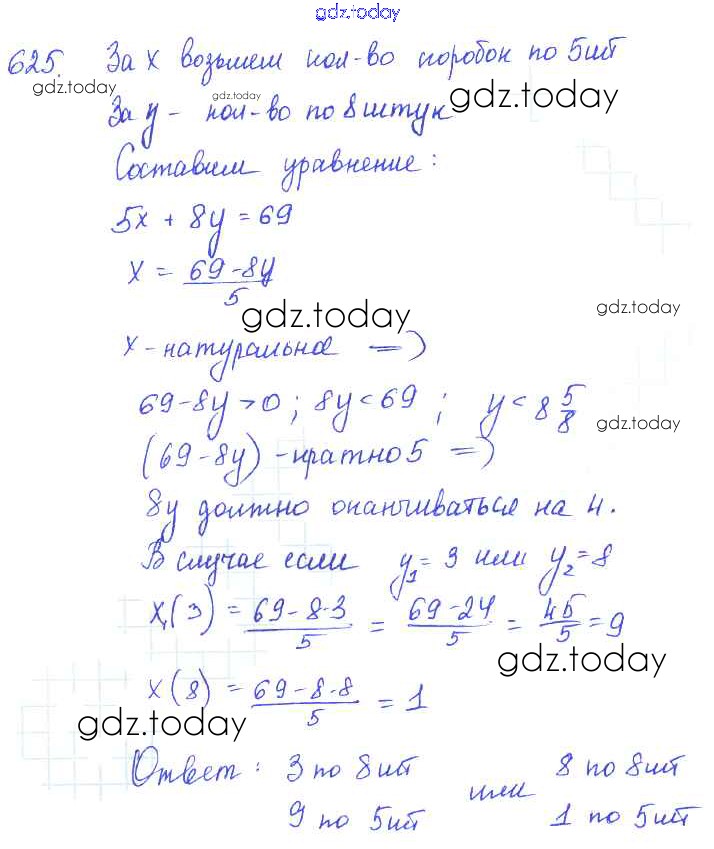 gdz.today
625. За x возьмем кол-во коробок по 5шт
gdz.today gdz.today gdz.today
За y - кол-во по 8 штук
Составим уравнение:
5x + 8y = 69
x = \frac{69-8y}{5}
gdz.today gdz.today
x - натуральна =>
69-8y>0; 8y<69; y<8\frac{5}{8}
gdz.today
(69-8y) - кратно 5 =>
8y должно оканчиваться на 4.
В случае если y₁=3 или y₂=8
x₁(3) = \frac{69-8·3}{5} = \frac{69-24}{5} = \frac{45}{5} = 9
gdz.today
x(8) = \frac{69-8·8}{5} = 1
gdz.today
Ответ: 3 по 8шт или 8 по 8шт
9 по 5шт 1 по 5шт